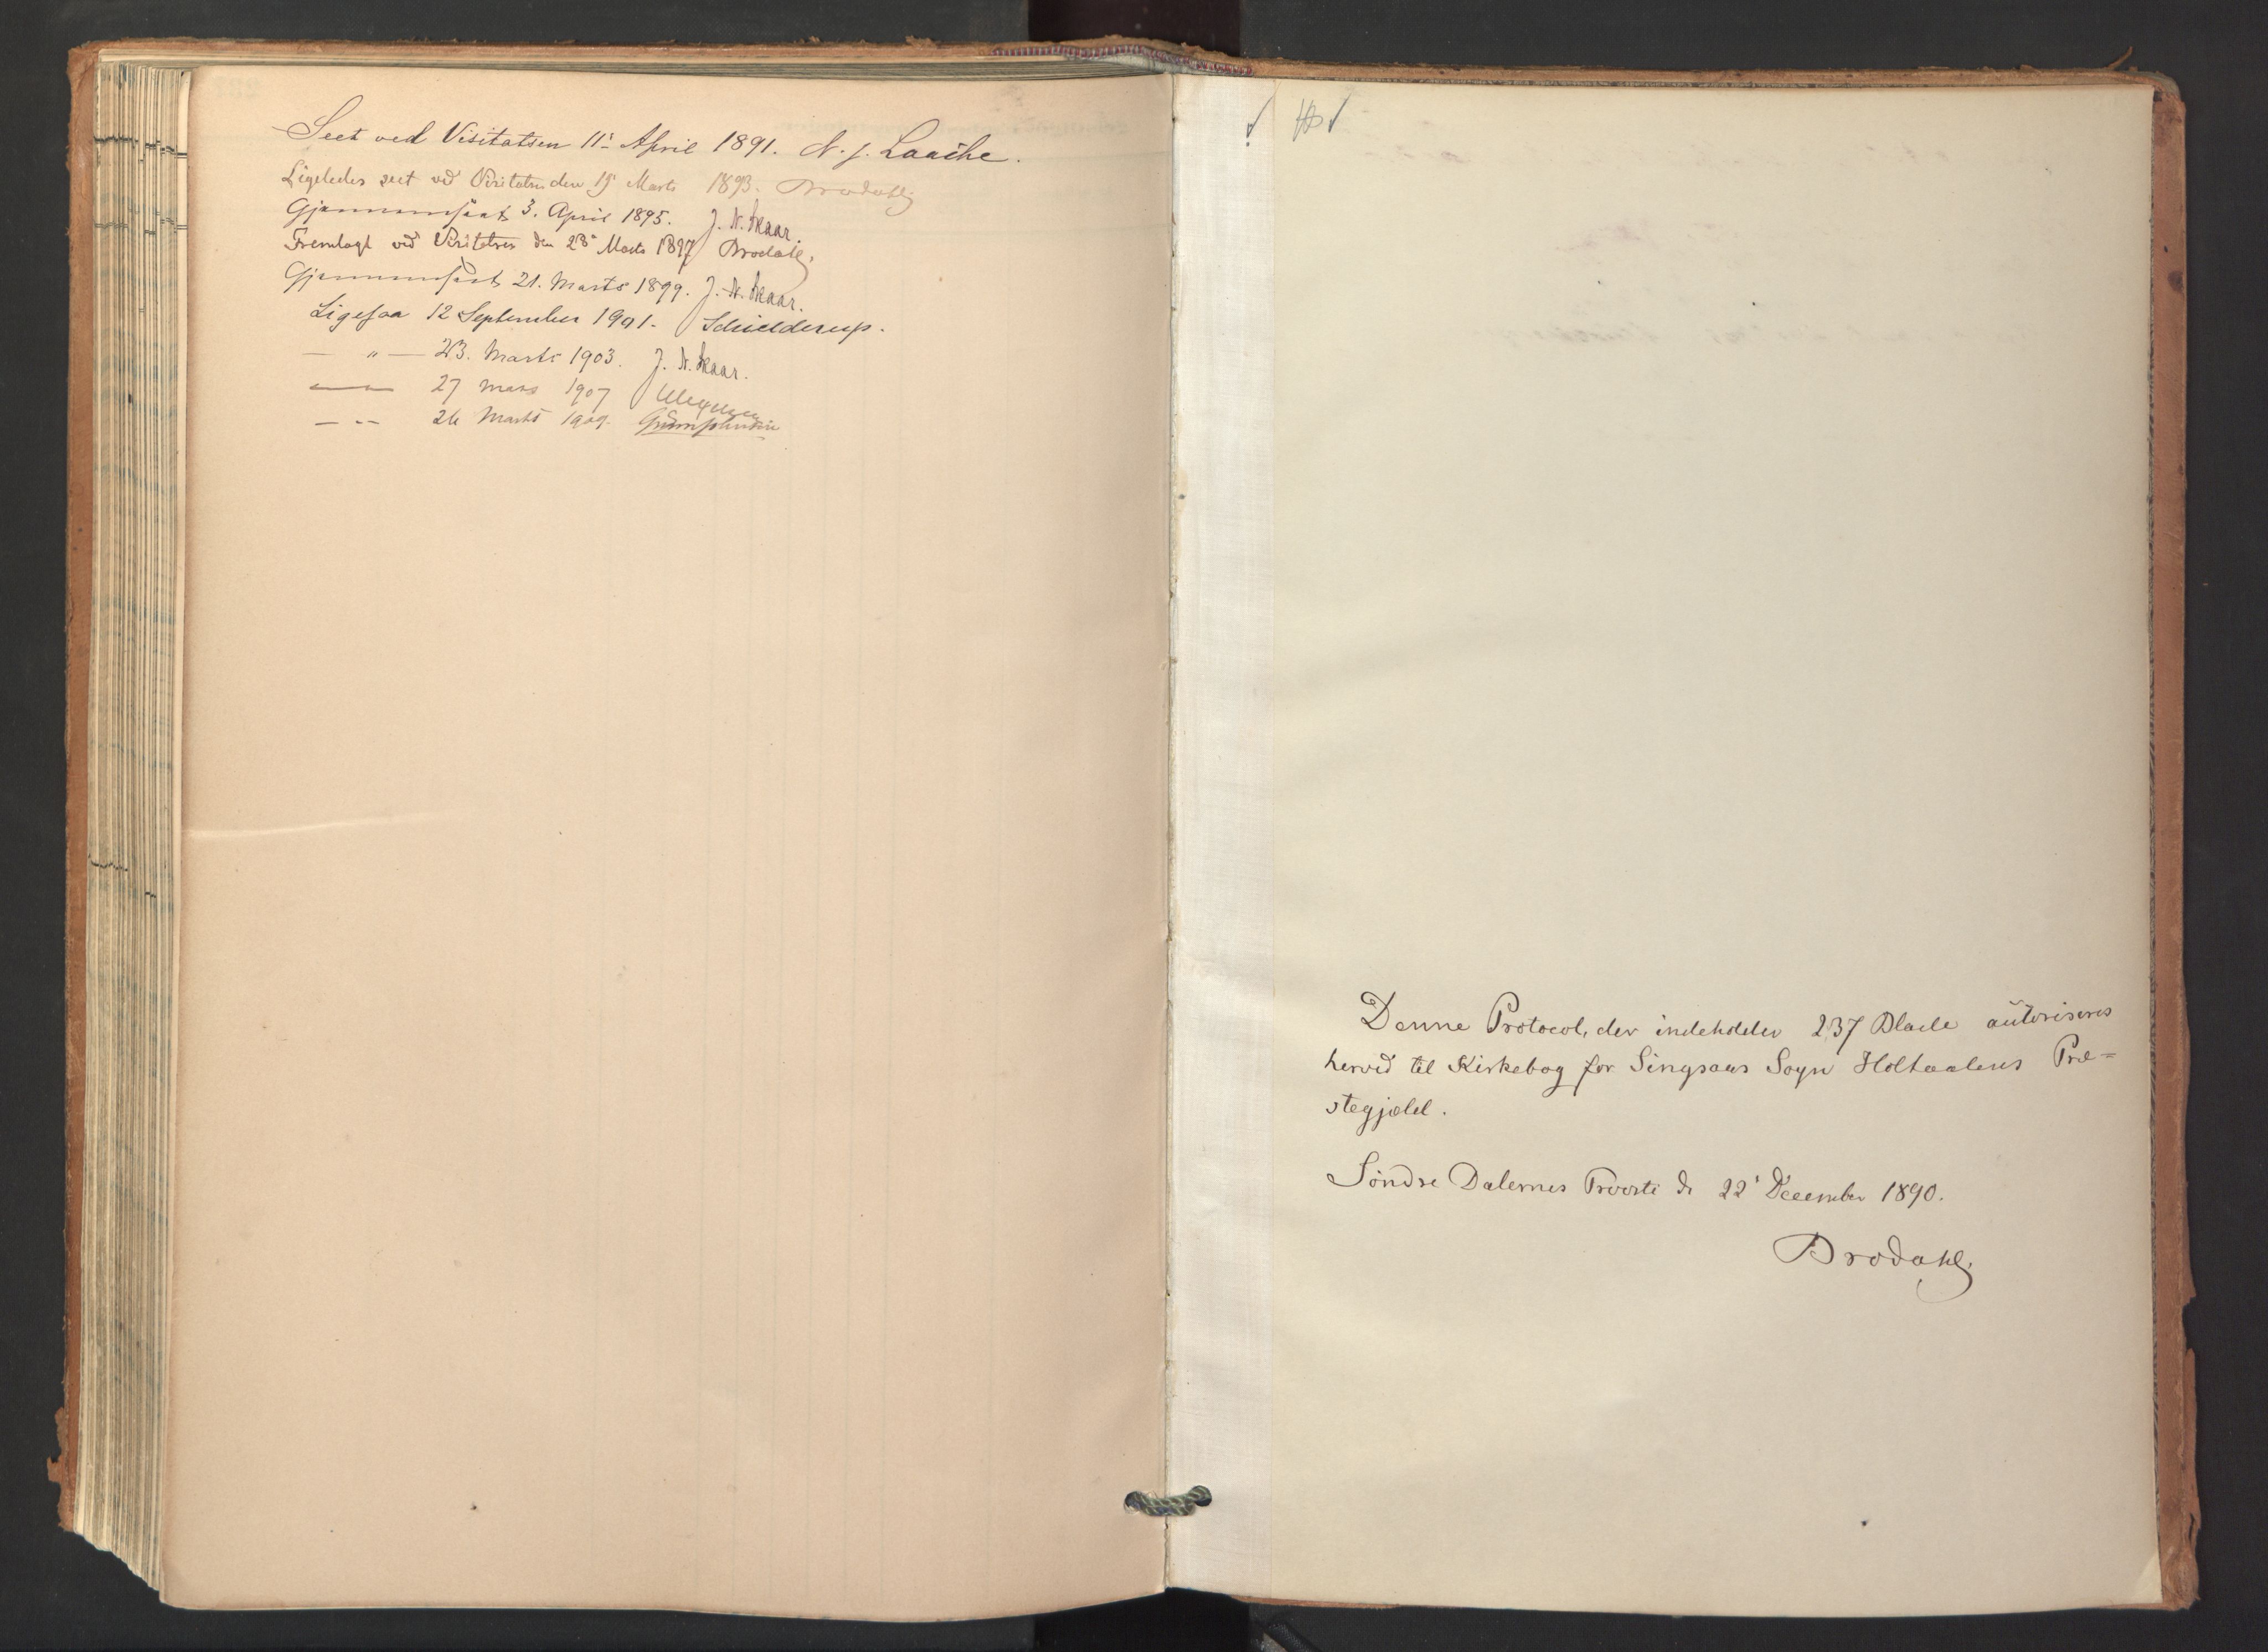 Seet ved Visitatsen 11' April 1891. N. J. Laache.
Ligeledes seet ved Visitatsen den 19' Marts 1893. Brodahl,
Gjennemseet 3. April 1895. J. N. Skaar.
Fremlagt ved Visitatsen den 28' Marts 1897 Brodahl,
Gjennemseet 21. Marts 1899. J. N. Skaar.
Ligesaa 12 September 1901. Schielderup.
— " — 23. Marts 1903. J. N. Skaar.
— " — 27 Mars 1907
— " — 26 Marts 1909.
Denne Protocol, der indeholder 237 Blade autoriseres
herved til Kirkebog for Singsaas Sogn Holtaalens Præ=
stegjæld.
Søndre Dalernes Provsti d. 22' December 1890.
Brodahl,